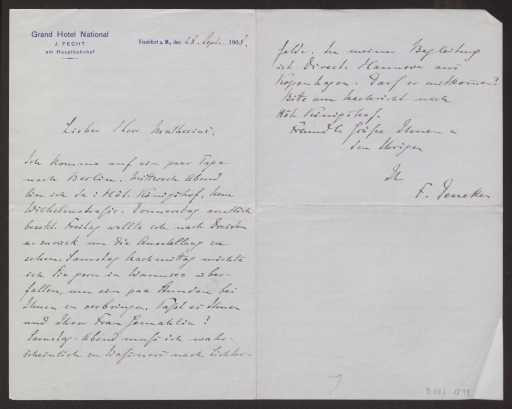 Grand Hotel National
J. FECHT
am Hauptbahnhof
Frankfurt a. M., den 28. 190
Lieber Herr
Ich komme auf ein paar Tage
nach Berlin. Mittwoch Abend
bin ich da: Hôt. Königshof, 
Wilhelmstraße. Donnerstag 
besetzt. Freitag wollte ich nach Dresden
u. zurück um die Ausstellung zu
sehen. Samstag Nachmittag möchte
ich Sie gern in Wannsee über-
fallen, um ein paar Stunden bei
Ihnen zu verbringen. Paßt es Ihnen
und Ihrer Frau Gemahlin?
Samstag-Abend muß ich wahr-
scheinlich zu nach Lichter-
felde. In meiner Begleitung
ist Direct. Hannover aus
Kopenhagen. Darf er mitkommen?
Bitte um Nachricht nach
Hôt. Königshof.
Freundl. Grüße Ihnen u
den Ihrigen
Ihr
F. Deneken